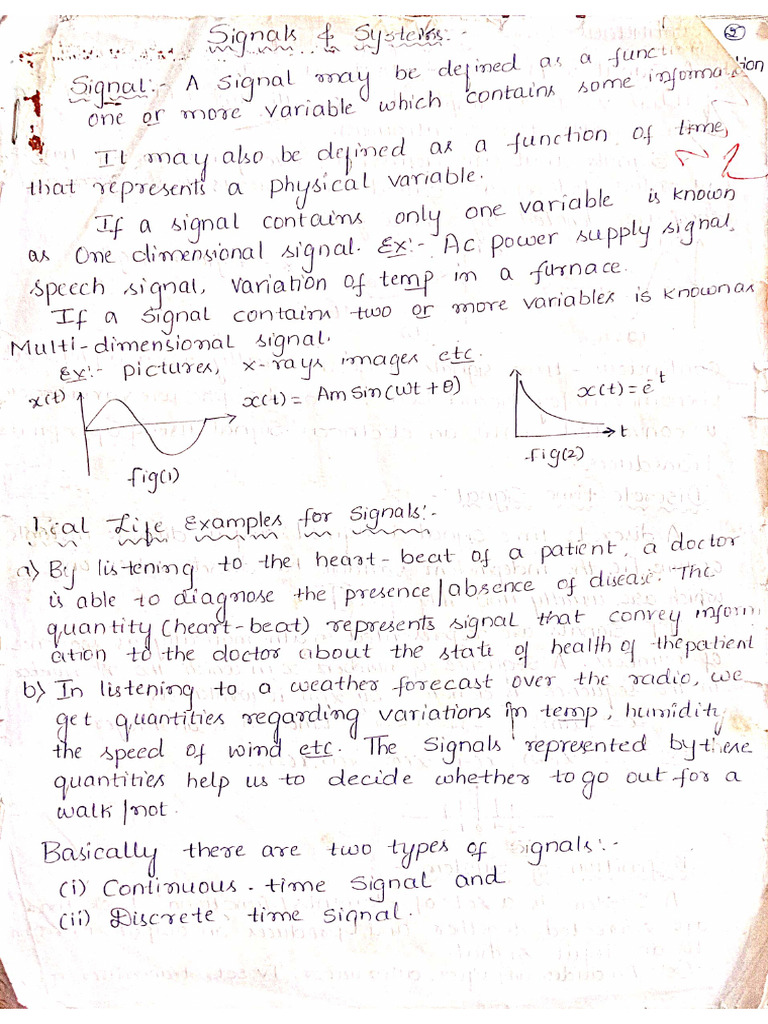 Signals & Systems:-
Signal:- A signal may be defined as a function
one or more variable which contains some information
It may also be defined as a function of time,
that represents a physical variable.
If a signal contains only one variable is known
as One dimensional signal. Ex:- Ac power supply signal,
speech signal, variation of temp in a furnace.
If a signal contains two or more variables is known as
Multi-dimensional signal.
Ex:- pictures, x-rays images etc.
x(t) x(t) = Am Sin(wt + θ) x(t) = e^-t
t
fig(1) fig(2)
Life Examples for Signals:-
a) By listening to the heart-beat of a patient, a doctor
is able to diagnose the presence/absence of disease. The
quantity (heart-beat) represents signal that convey inform
ation to the doctor about the state of health of the patient
b) In listening to a weather forecast over the radio, we
get quantities regarding variations in temp, humidity
the speed of wind etc. The Signals represented by these
quantities help us to decide whether to go out for a
walk/not.
Basically there are two types of signals:-
(i) Continuous-time Signal and
(ii) Discrete time signal.